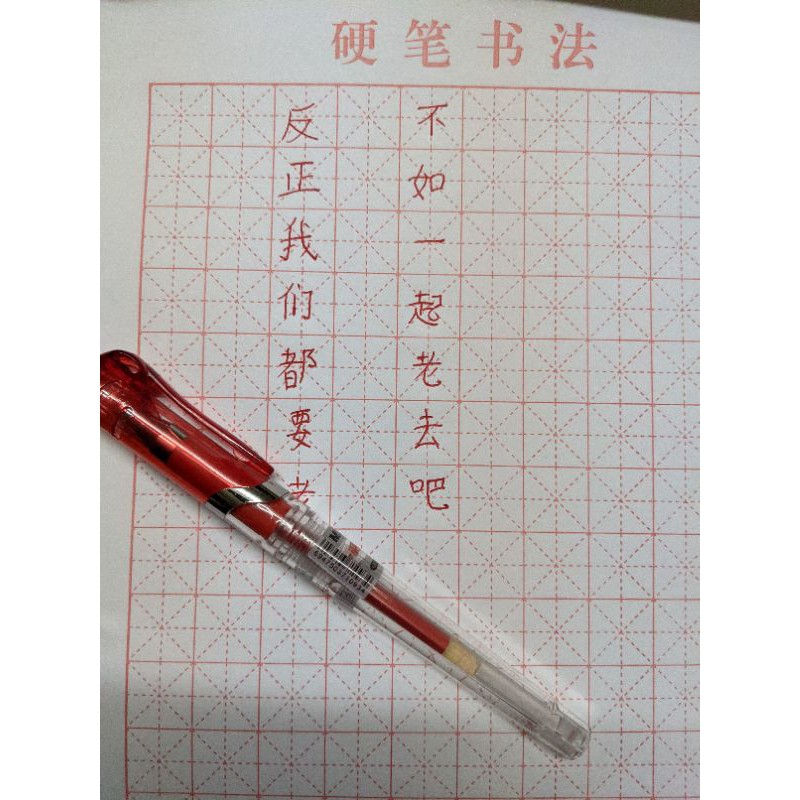 硬笔书法
反正我们都要老
不如一起老去吧